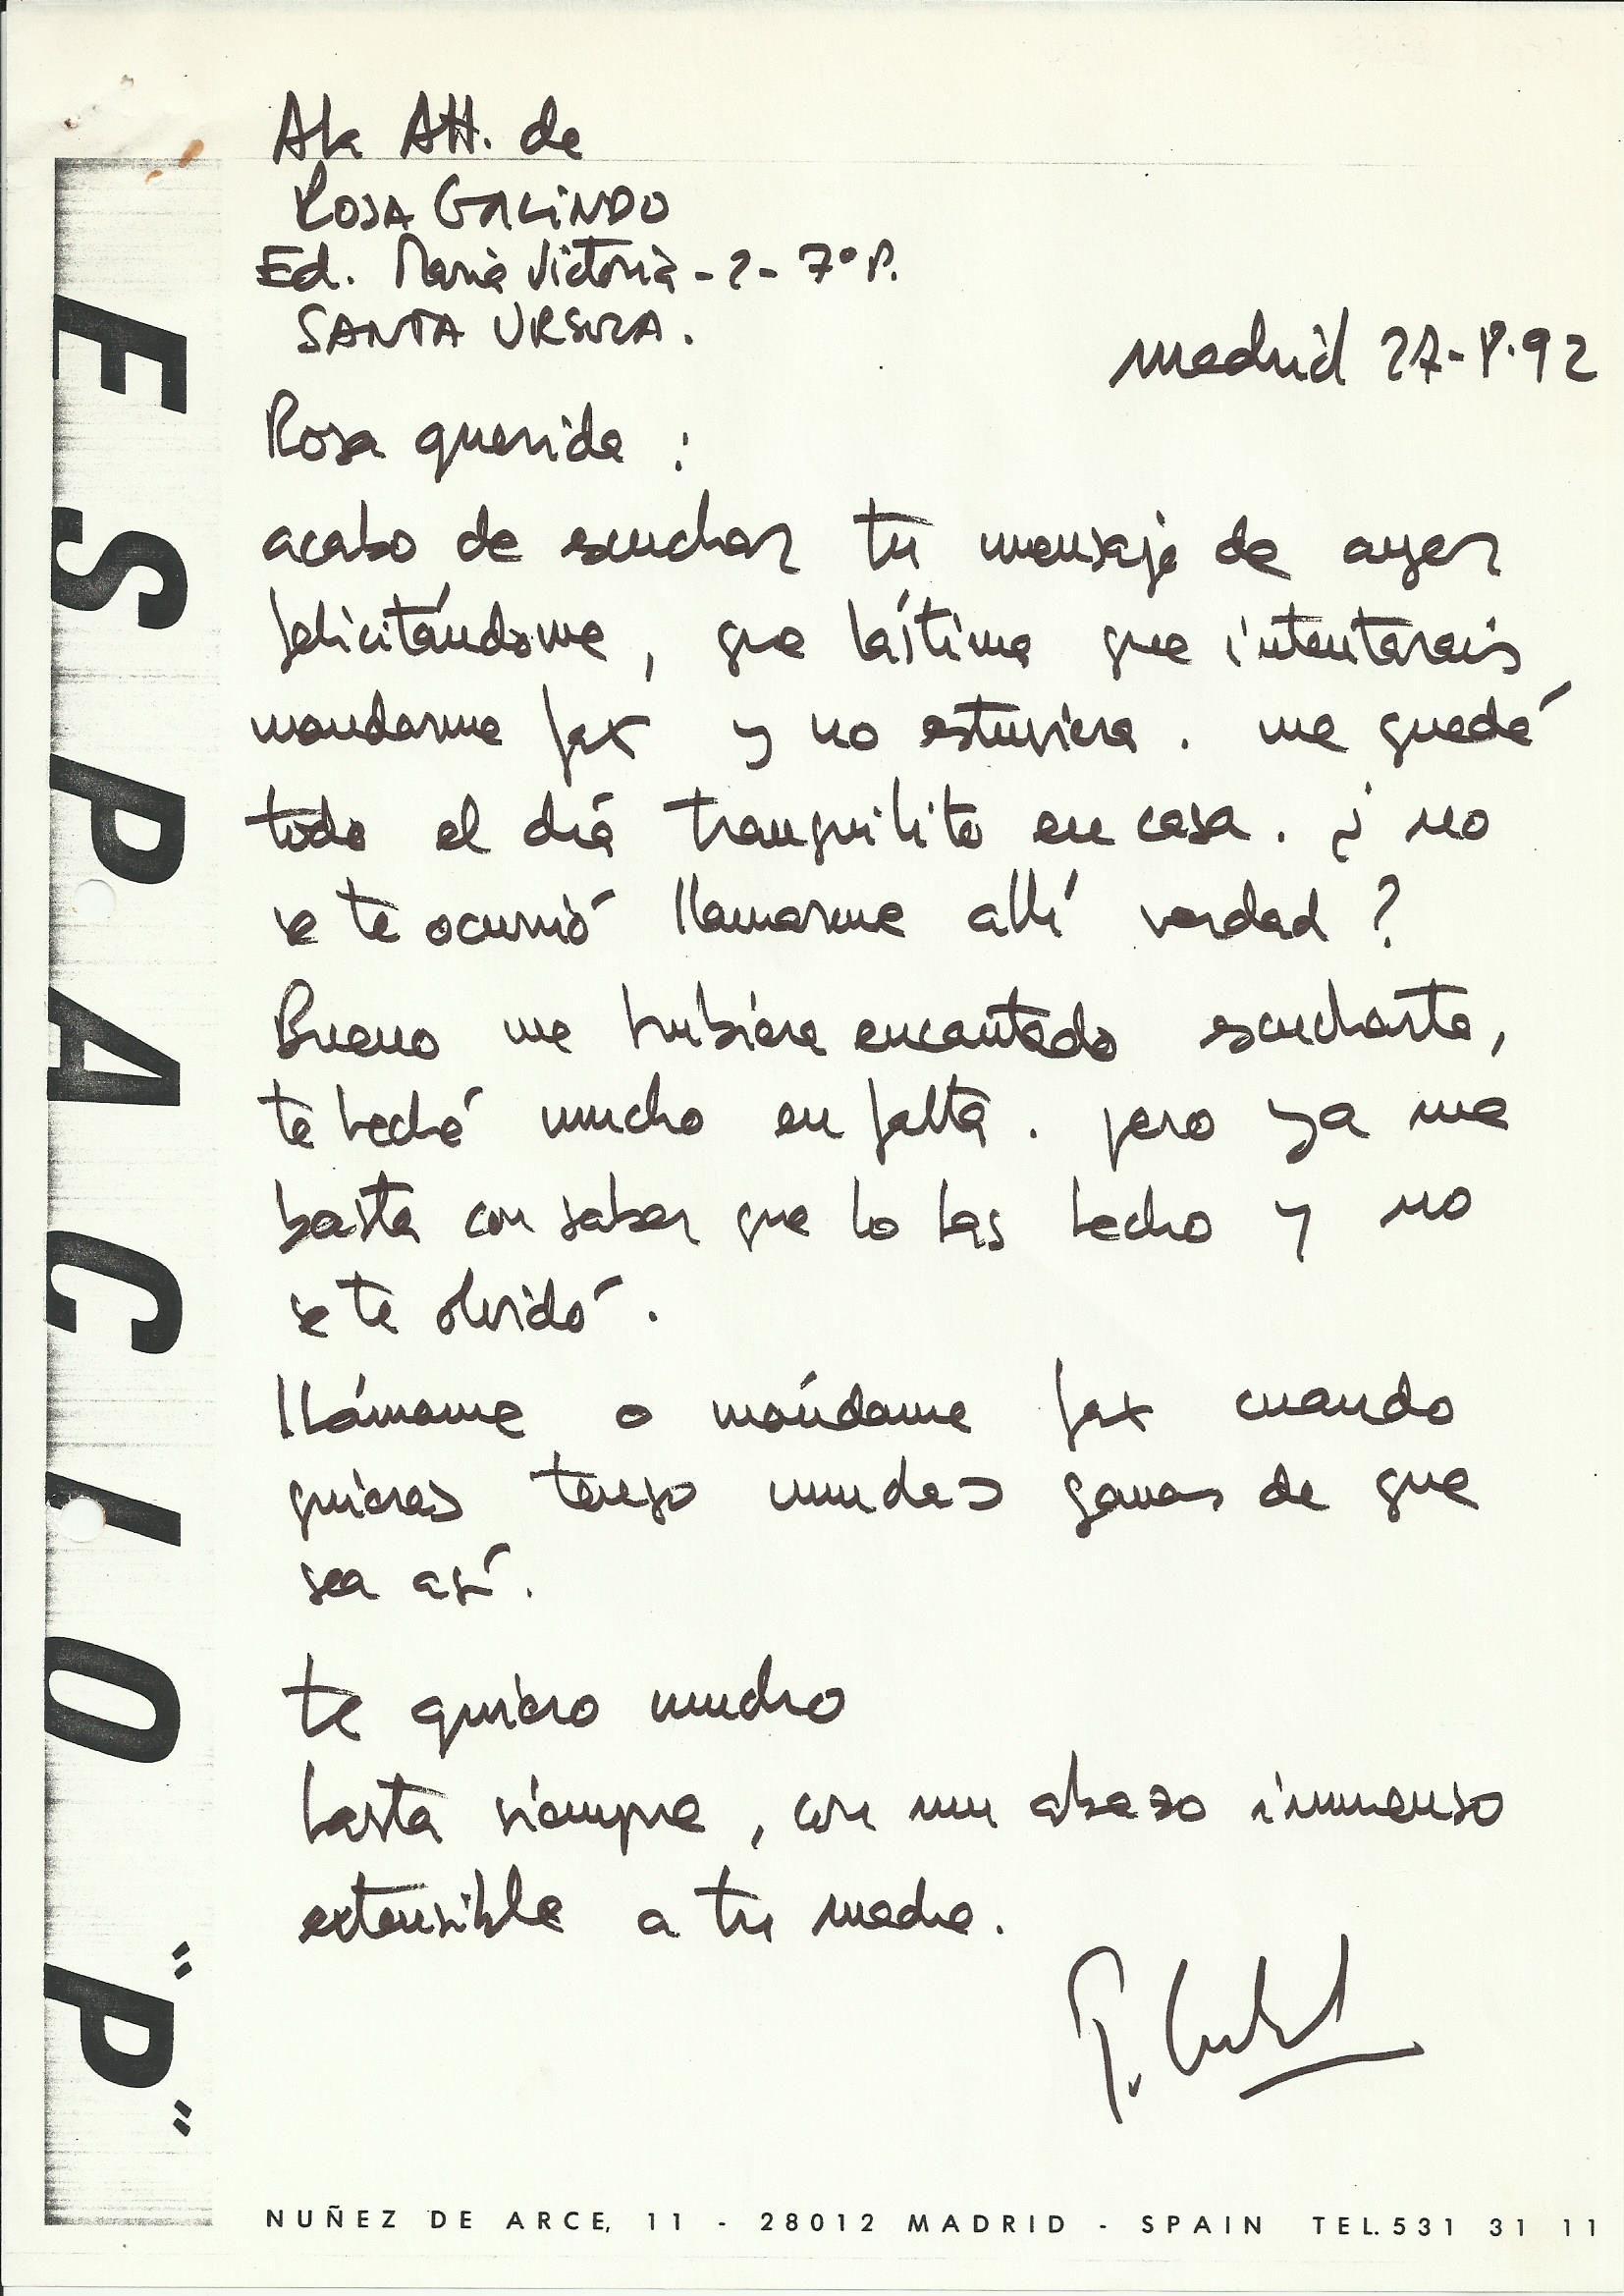 A la Att. de
ROSA GALINDO
Ed. Maria Victoria - 2 - 7º P.
SANTA URSULA.
madrid 27-8-92
Rosa querida :
acabo de escuchar tu mensaje de ayer
felicitándome, que lástima que intentarais
mandarme fax y no estuviera. me quedé
todo el día tranquilito en casa. ¿ no
se te ocurrió llamarme allí verdad ?
Bueno me hubiera encantado escucharte,
te heché mucho en falta. pero ya me
basta con saber que lo has hecho y no
se te olvidó.
llámame o mándame fax cuando
quieras tengo muchas ganas de que
sea así.
te quiero mucho
hasta siempre, con un abrazo inmenso
extensible a tu madre.
ESPACIO "P"
NUÑEZ DE ARCE, 11 - 28012 MADRID - SPAIN TEL. 531 31 11